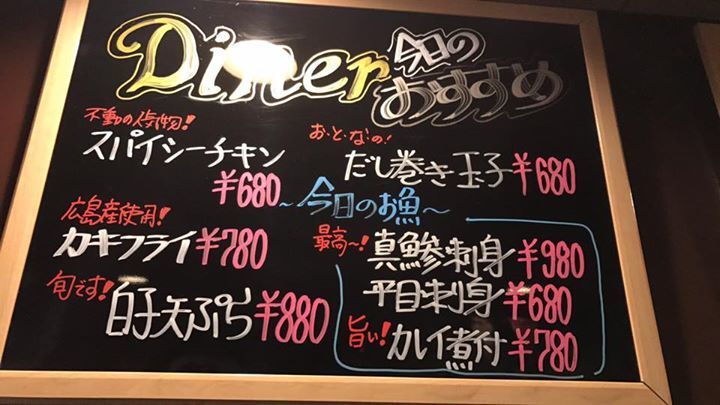 Diner 今日の
おすすめ
不動の人気物!
スパイシーチキン
¥680
お・と・な・の!
だし巻き玉子 ¥680
広島産使用!
カキフライ ¥780
旬です!
白子天ぷら ¥880
~今日のお魚~
最高~!
真鯵刺身 ¥980
平目刺身 ¥680
旨い!
カレイ煮付 ¥780